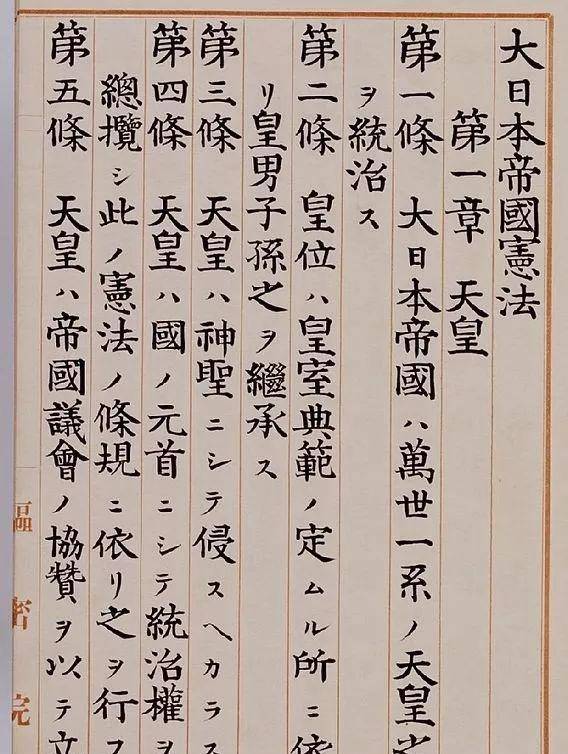 大日本帝國憲法
第一章 天皇
第一條 大日本帝國ハ萬世一系ノ天皇
ヲ統治ス
第二條 皇位ハ皇室典範ノ定ムル所ニ依
リ皇男子孫之ヲ繼承ス
第三條 天皇ハ神聖ニシテ侵スヘカラス
第四條 天皇ハ國ノ元首ニシテ統治權ヲ
總攬シ此ノ憲法ノ條規ニ依リ之ヲ行フ
第五條 天皇ハ帝國議會ノ協贊ヲ以テ立
樞密院